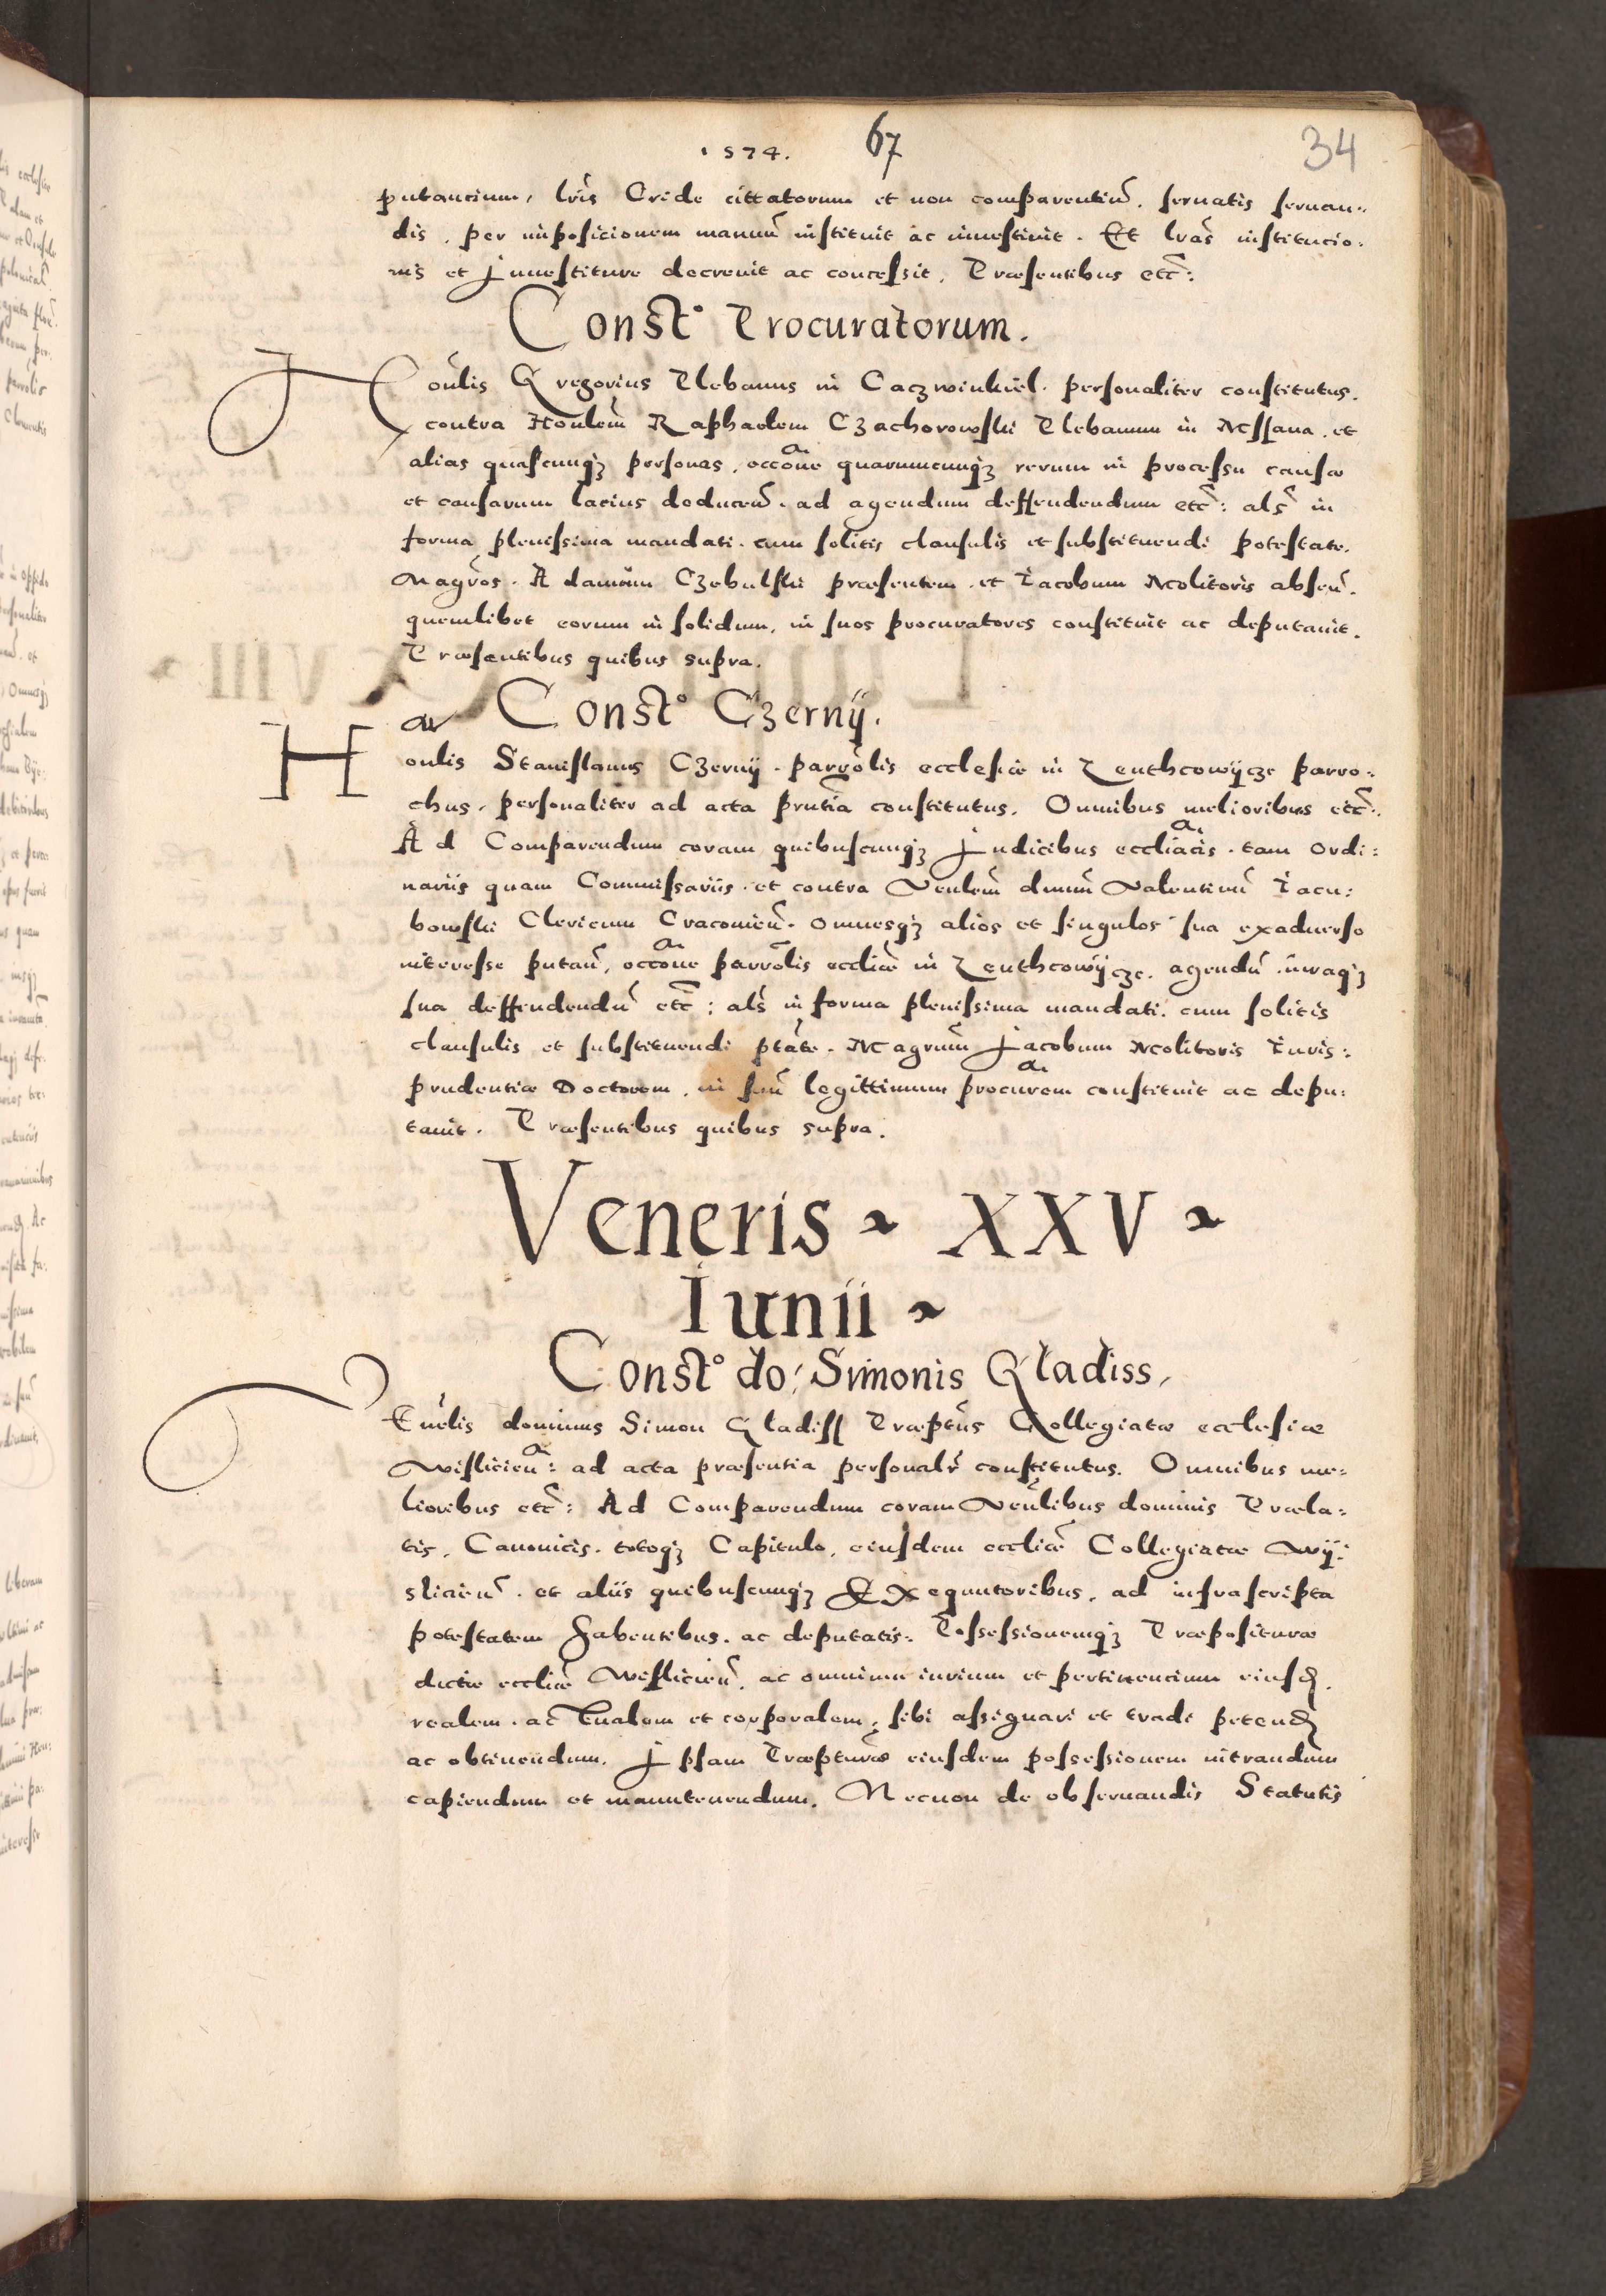 1574. 67 34
putancium, lris Cride cittatorum et non comparentiũ. seruatis seruan:
dis, per impositionem manuũ instituit ac inuestiuit. Et lras institucio:
nis et Inuestiture decreuit ac concessit. Præsentibus etc̃:
Const.º Procuratorum.
Honlis Gregorius Plebanus in Caczwinkiel. personaliter constitutus.
contra Honlem Raphaelem Czachorowski Plebanum in Mssana. et
alias quascunqȝ personas, occone quarumcunqȝ rerum in processu causæ
et causarum lacius deducen̄. ad agendum deffendendum etc̃: als in
forma plenissima mandati. cum solitis clausulis et substituendi potestate.
Magros. Adamum Czebulski præsentem. et Iacobum Molitoris absen̄.
quemlibet eorum in solidum, in suos procuratores constituit ac deputauit.
Præsentibus quibus supra.
Const.º Czernÿ.
Honlis Stanislaus Czernÿ. parrolis ecclesiæ in Zenthcowÿcze parro:
chus, personaliter ad acta prntia constitutus. Omnibus melioribus etc̃:
Ad Comparendum coram quibuscunqȝ Iudicibus eccliacis. tam ordi:
nariis quam Commissariis. et contra Venlem dnum Valentinũ Iacu:
bowski Clericum Cracouien̄. omnesqȝ alios et singulos sua exaduerso
interesse putan̄, occone parrolis eccliæ in Zenthcowÿcze. agendũ. iuraqȝ
sua deffendendũ etc̃: als in forma plenissima mandati. cum solitis
clausulis et substituendi ptate. Magrum Iacobum Molitoris Iuris:
prudentiæ Doctorem, in suũ legittimum procurem constituit ac depu:
tauit. Præsentibus quibus supra.
Veneris XXV
Iunii
Const.º do: Simonis Gladiss,
Venlis dominus Simon Gladiss Præptus Collegiatæ ecclesiæ
Wislicien̄: ad acta præsentia personalr constitutus. Omnibus me:
lioribus etc̃: Ad Comparendum coram Venlibus dominis Præla:
tis, Canonicis. totoqȝ Capitulo, eiusdem eccliæ Collegiatæ Wÿ:
slicien̄. et aliis quibuscunqȝ Exequutoribus, ad infrascripta
potestatem habentibus. ac deputatis: Possessionemqȝ Præposituræ
dictæ eccliæ Wislicien̄, ac omnium iurium et pertinencium eiusd.
realem. actualem et corporalem, sibi assignari et tradi petend
ac obtinendum. Ipsam Præpturæ eiusdem possessionem intrandum
capiendum et manutenendum. Necnon de obseruandis Statutis